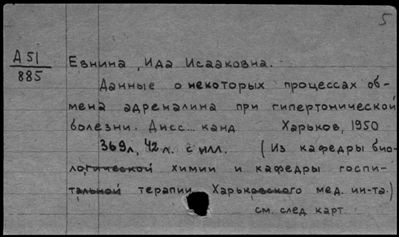 5
А 51
885
Евнина, Ида Исааковна.
Данные о некоторых процессах об-
мена адреналина при гипертонической
болезни. Дисс... канд Харьков, 1950
369л, 42 л. с илл. (Из кафедры био-
логической химии и кафедры госпи-
тальной терапии Харьковского мед. ин-та.)
см. след. карт.